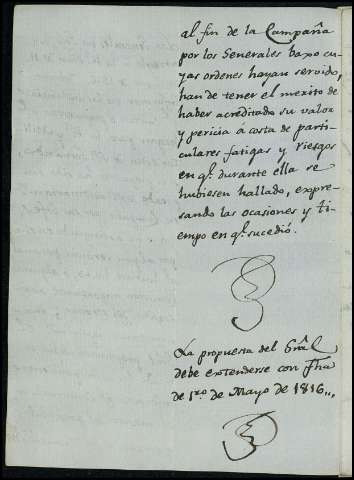 al fin de la Campaña
por los Generales baxo cu-
yas ordenes hayan servido,
han de tener el merito de
haber acreditado su valor
y pericia á costa de parti-
culares fatigas y riesgos
en q.e durante ella se
hubiesen hallado, expre-
sando las ocasiones y ti-
empo en q.e sucedió.
La propuesta del Grâl
debe extenderse con fha
de 1.ro de Mayo de 1816,,,